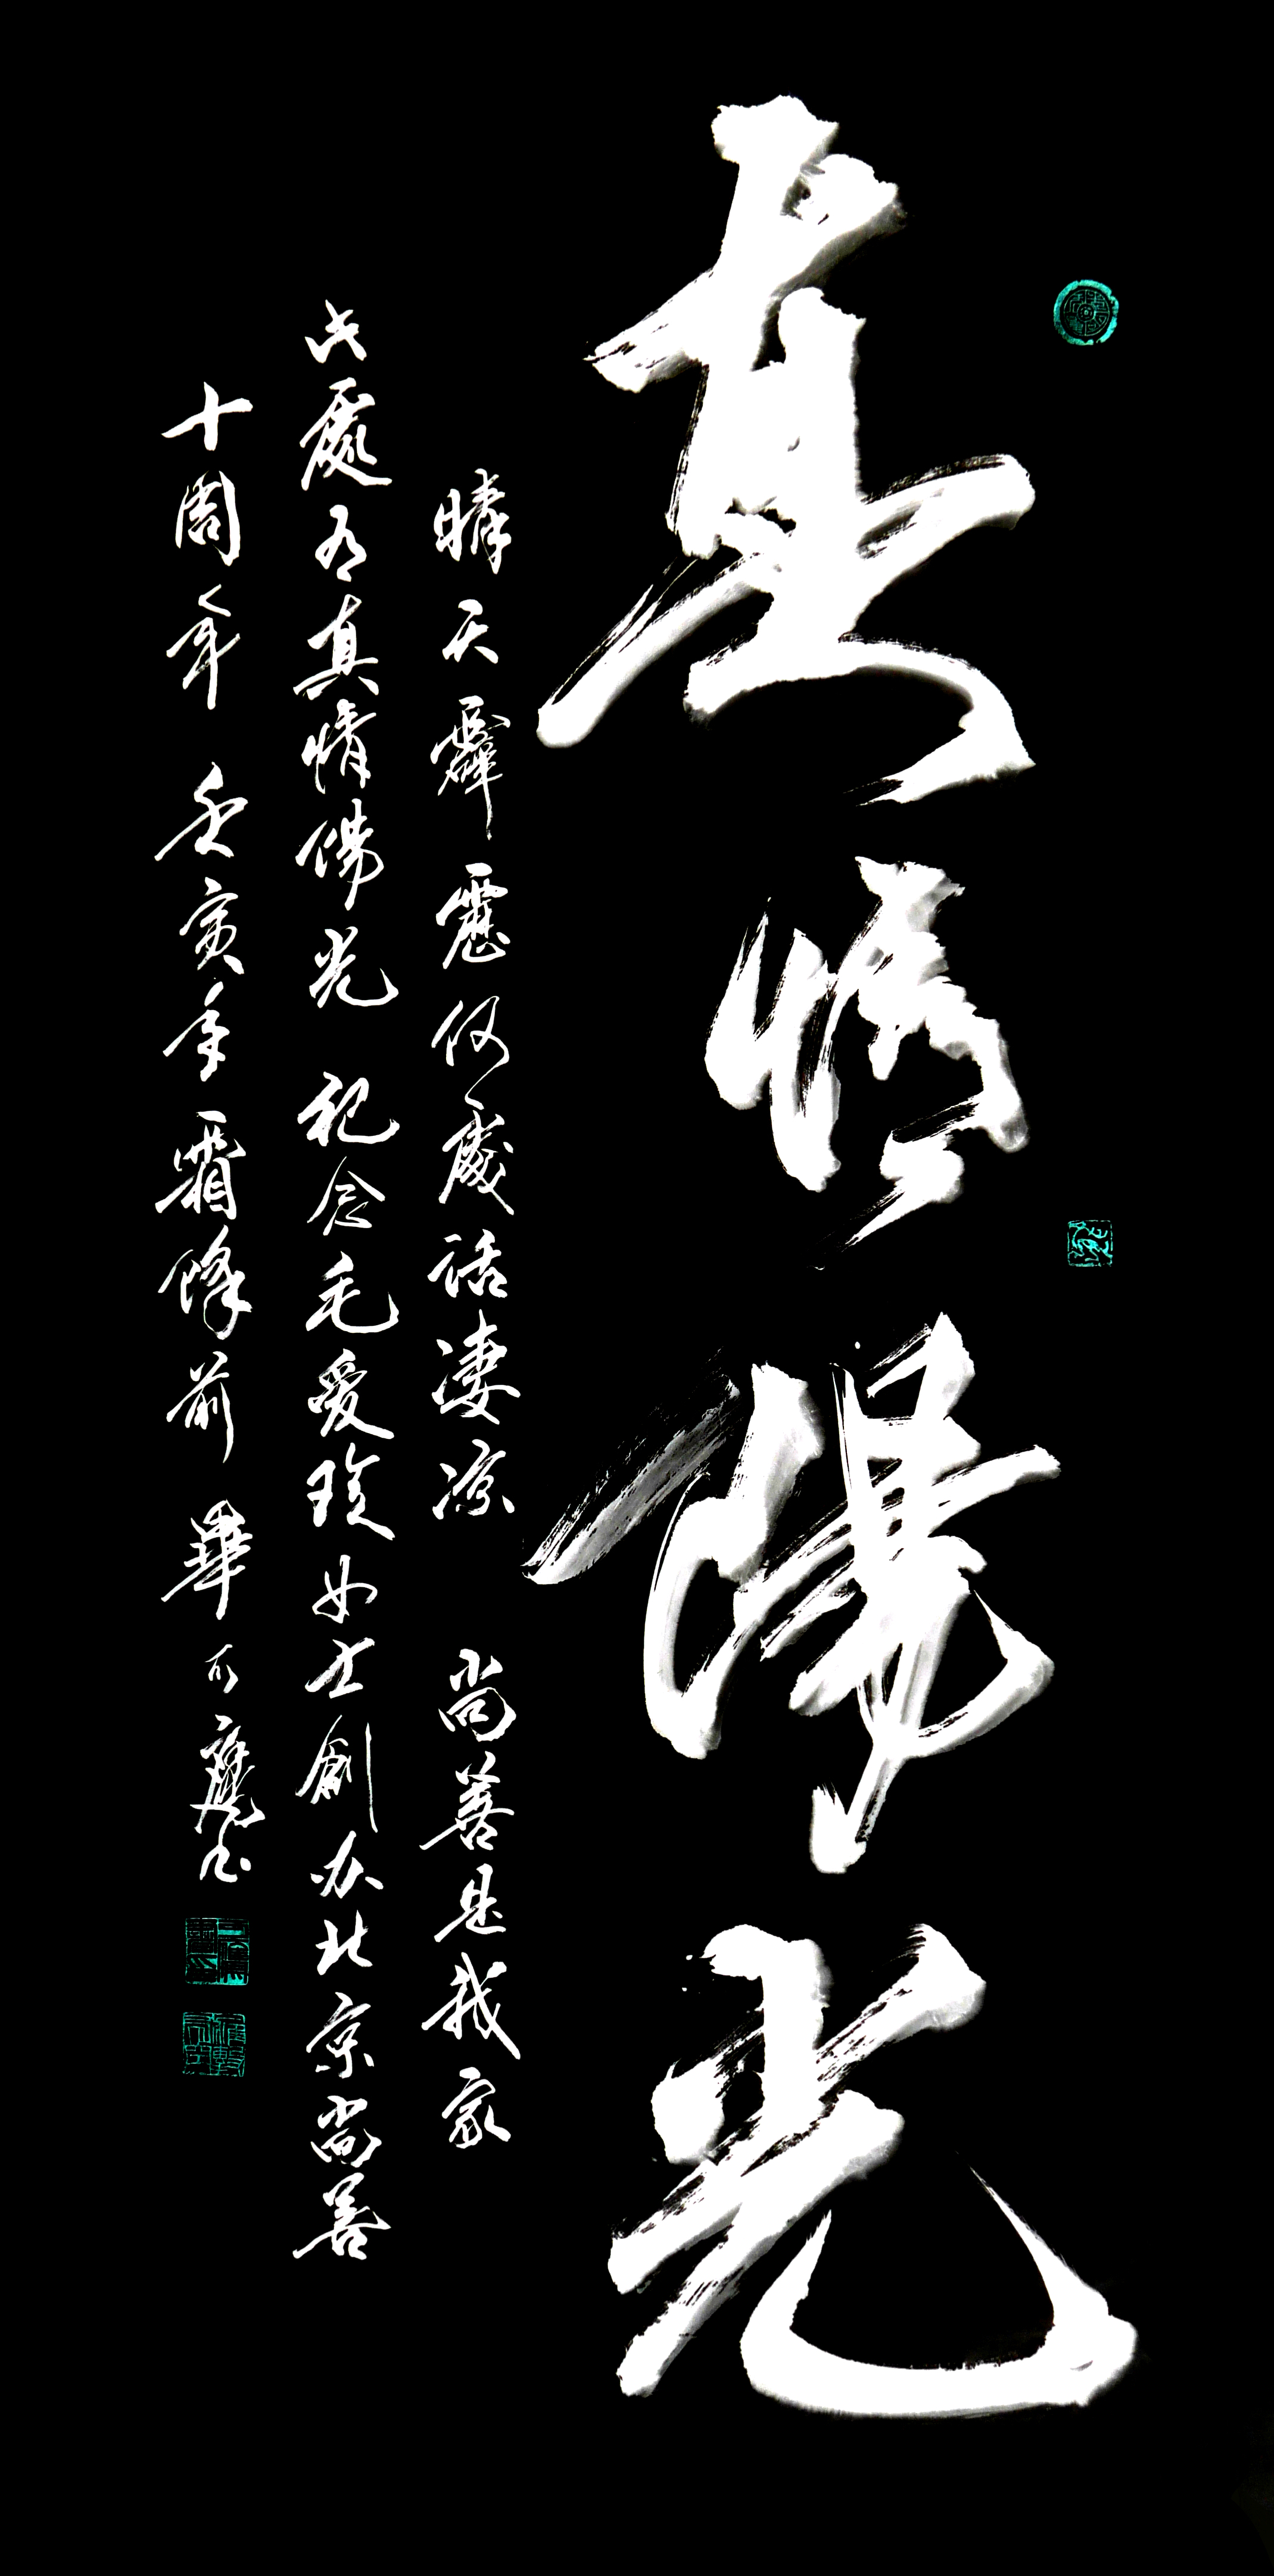 真情陽光
晴天霹靂何處話淒涼 尚善是我家
此處有真情陽光 記念毛愛珍女士創办北京尚善
十周年 壬寅年霜降前 畢 書